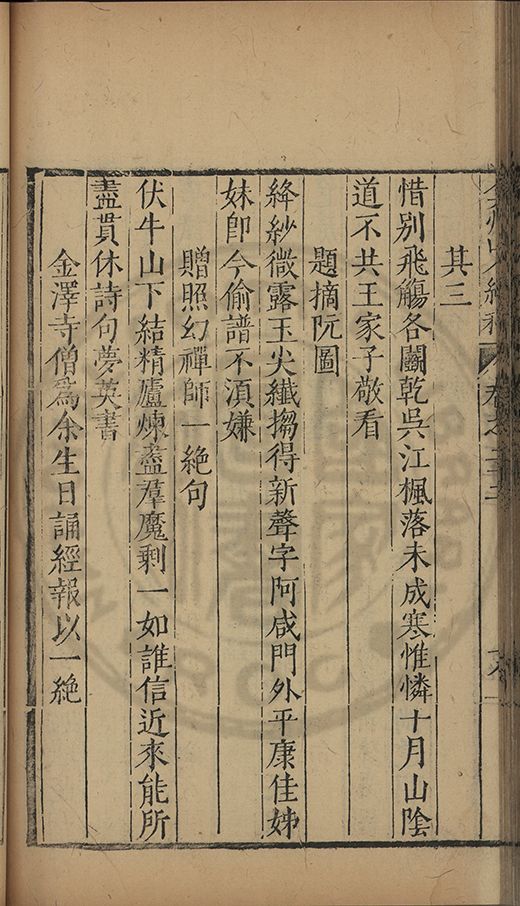 其三
惜别飛觴各鬭乾吳江楓落未成寒惟憐十月山陰
道不共王家子敬看
題摘阮圖
絳紗微露玉尖纎搊得新聲字阿咸門外平康佳姊
妹卽今偷譜不湏嫌
贈照幻禪師一絶句
伏牛山下結精廬煉盡羣魔剩一如誰信近來能所
盡貫休詩句夢英書
金澤寺僧爲余生日誦經報以一絶